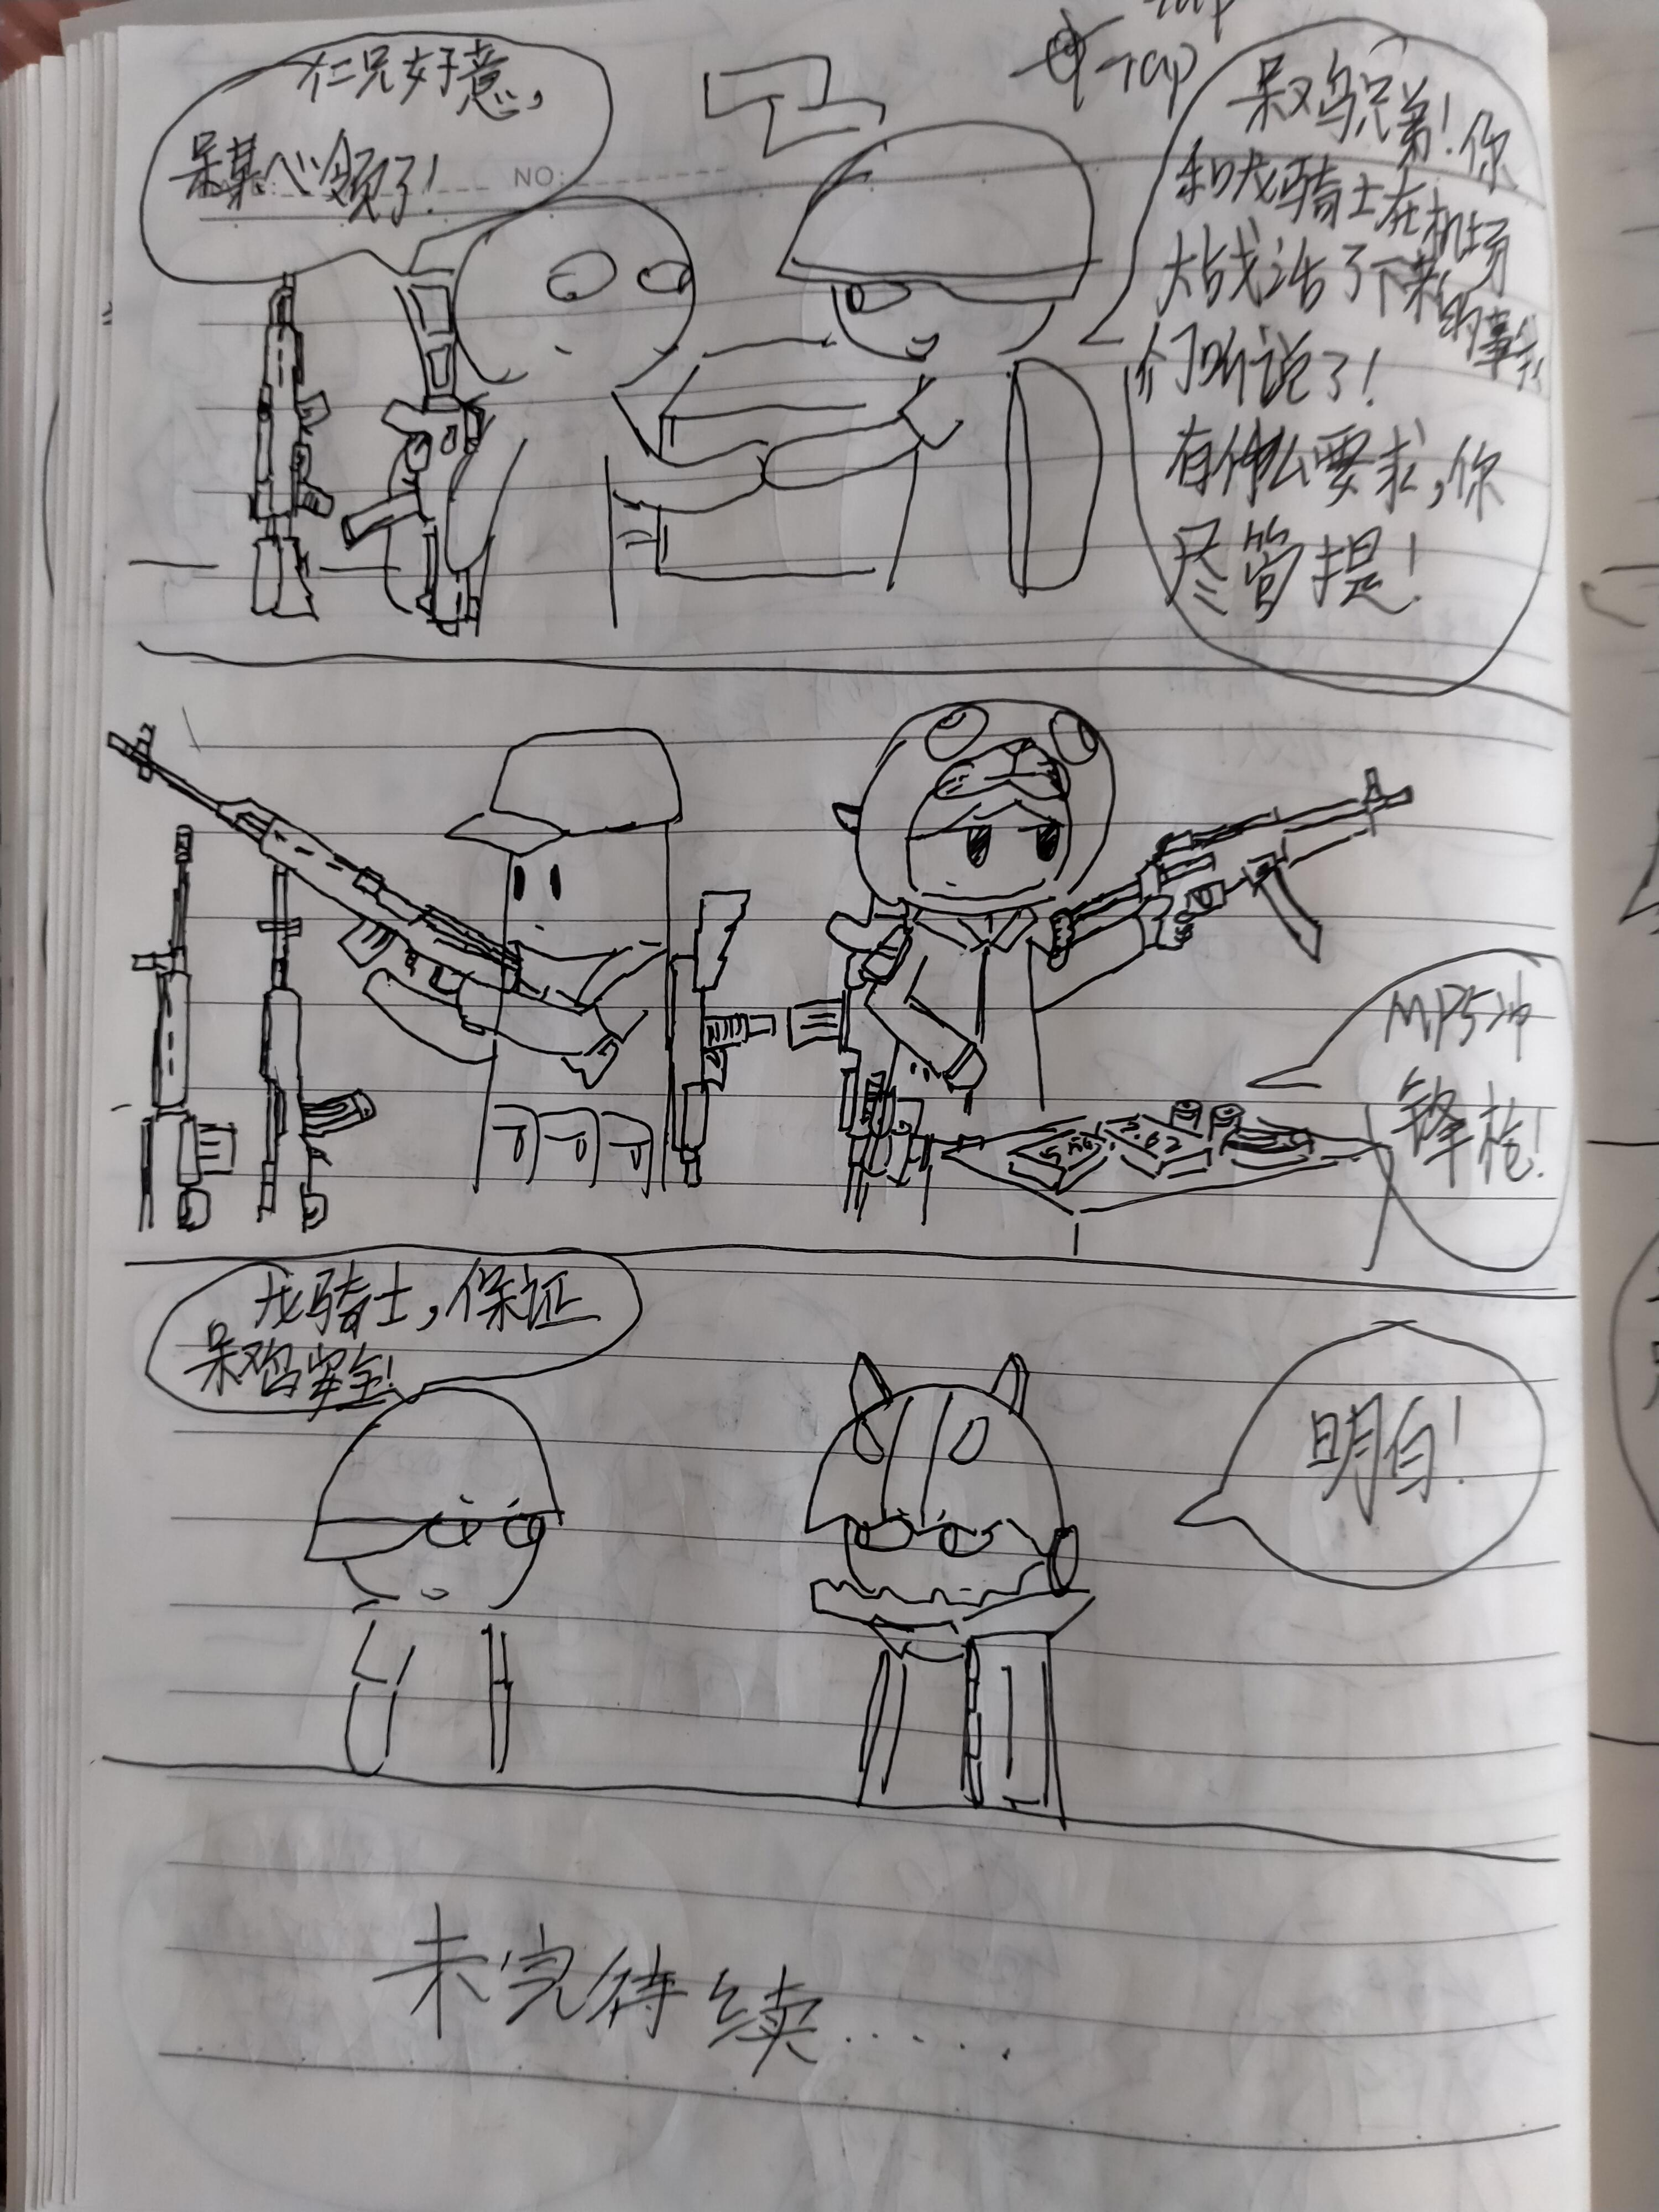 仁兄好意,
呆某心领了!
NO:
tap
tap
呆又鸟兄弟!你
和龙骑士在机场
大战活了下来的事我
们听说了!
有什么要求,你
尽管提!
5.56
7.62
MP5冲
锋枪!
龙骑士,保证
呆又鸟安全!
明白!
未完待续......